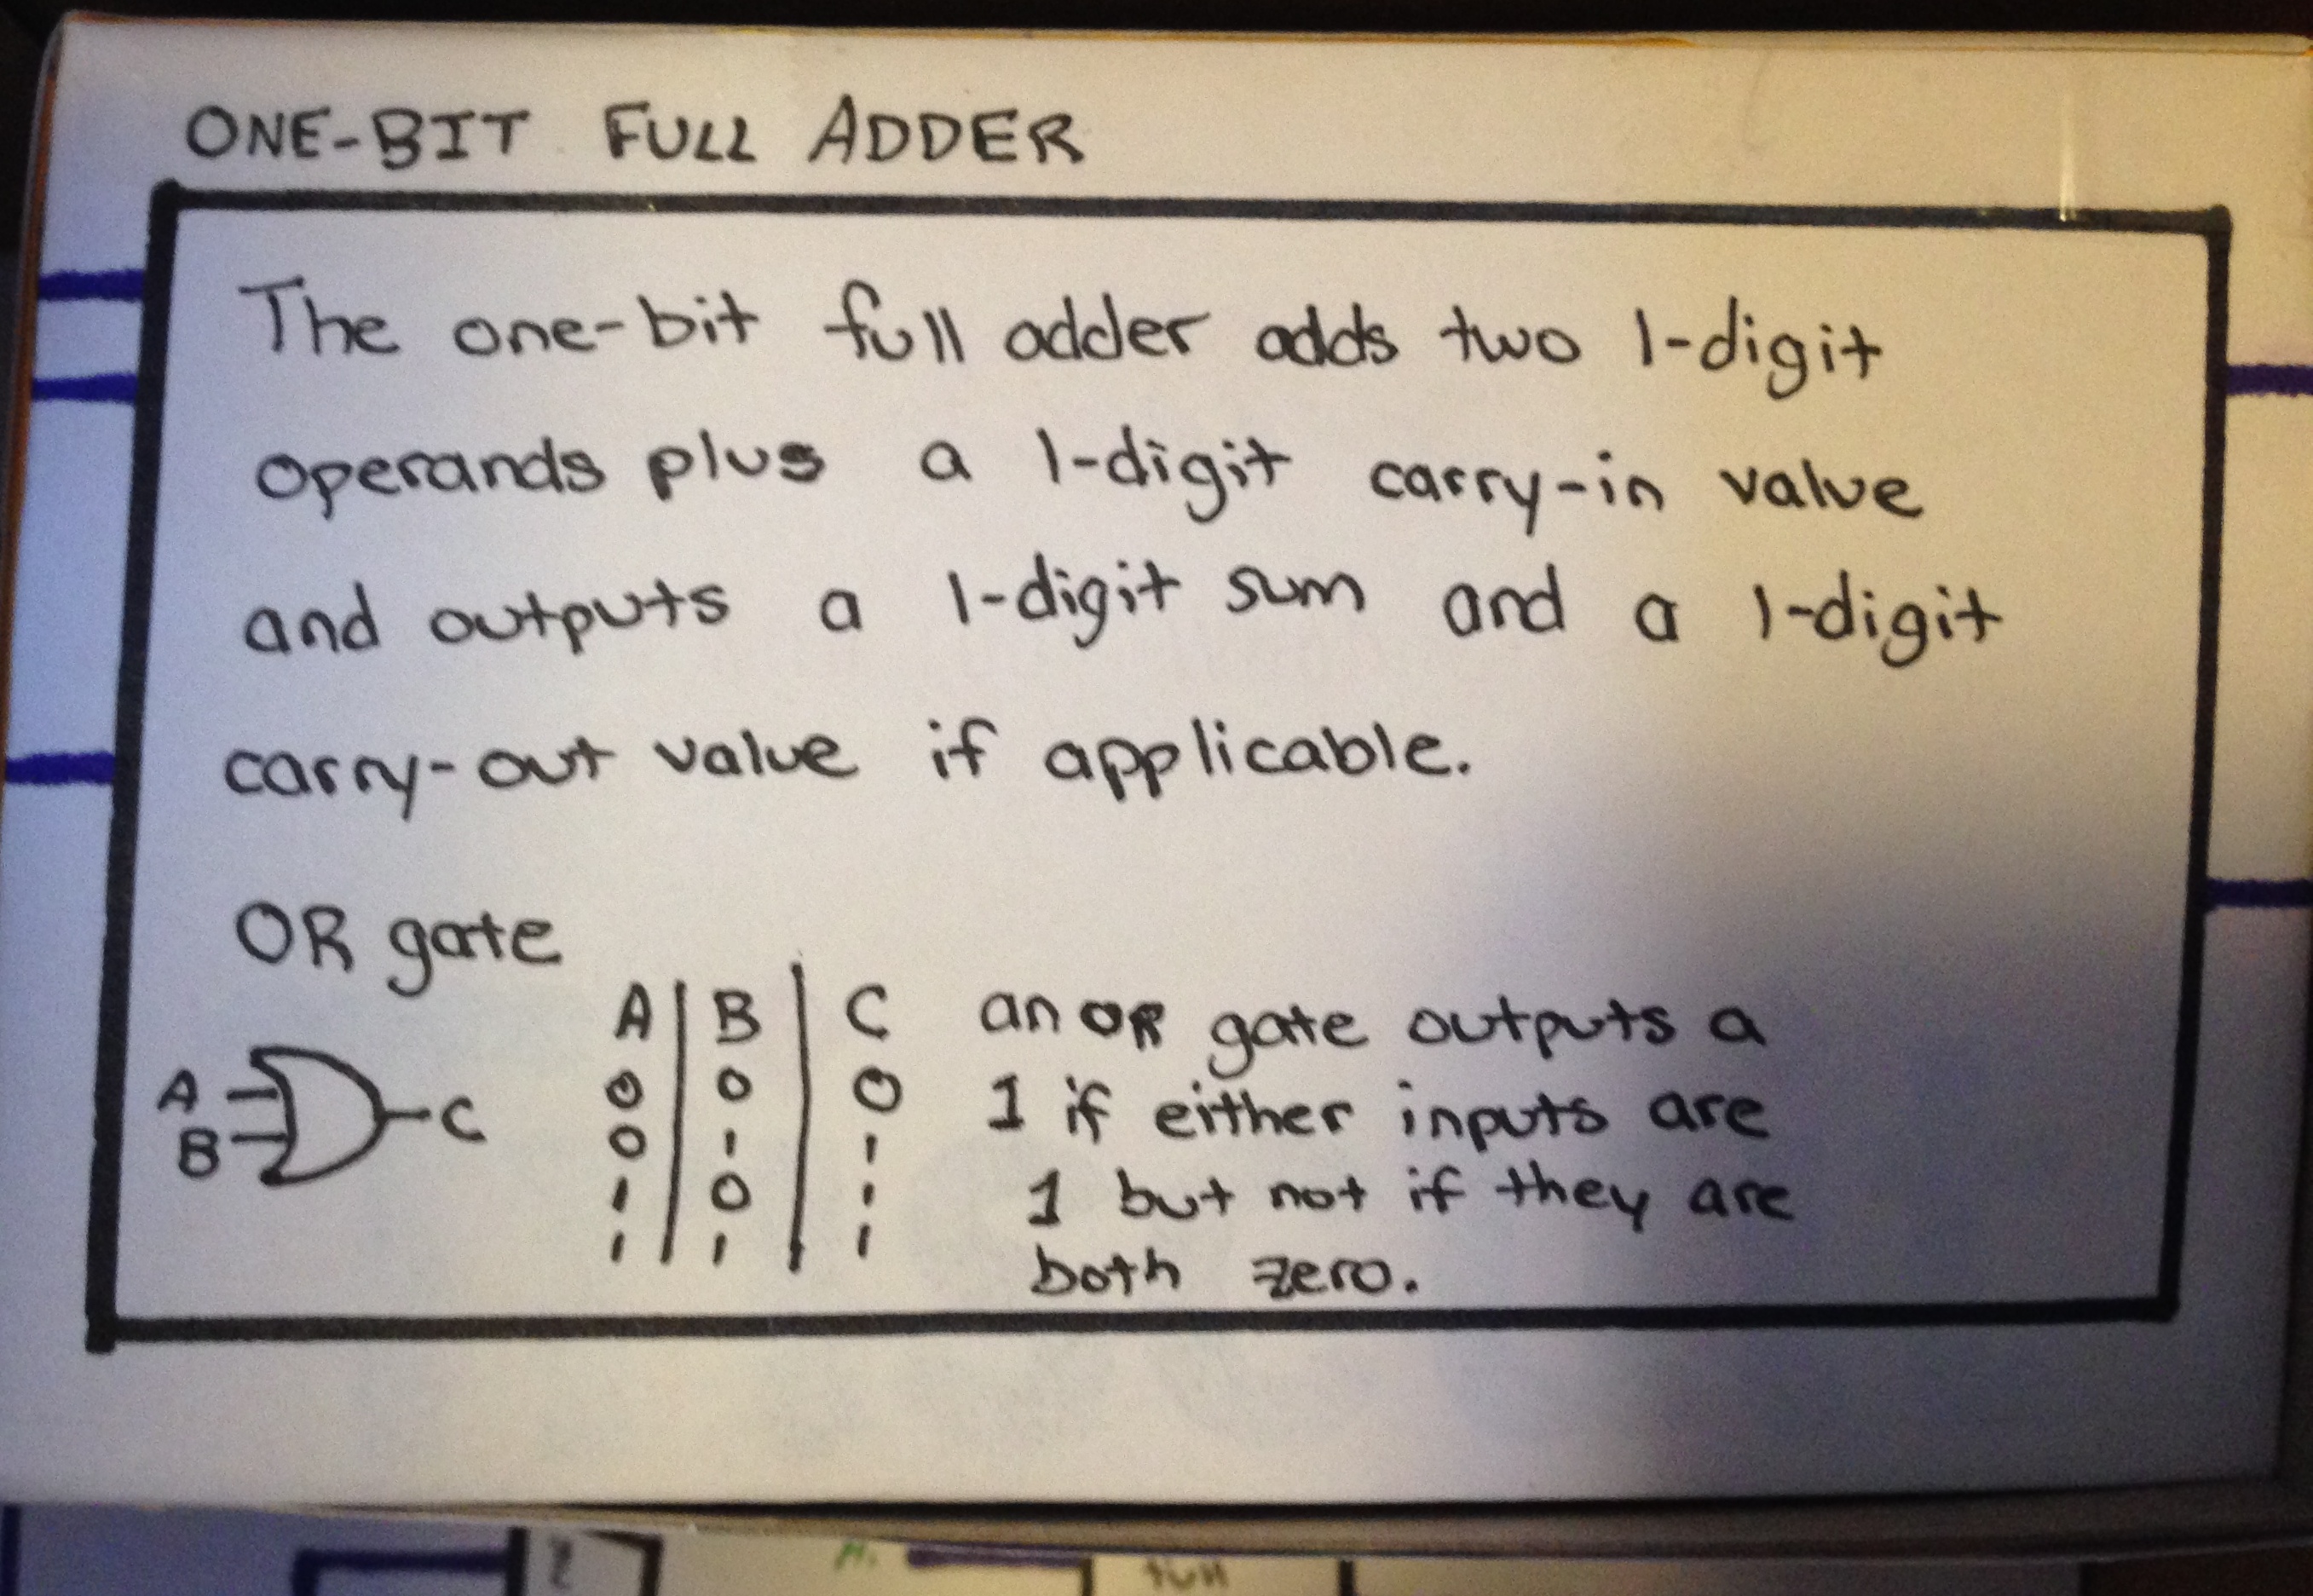 ONE-BIT FULL ADDER
The one-bit full adder adds two 1-digit
operands plus a 1-digit carry-in value
and outputs a 1-digit sum and a 1-digit
carry-out value if applicable.
OR gate
A B C
0 0 0
0 1 1
1 0 1
1 1 1
A
B
C
an OR gate outputs a
1 if either inputs are
1 but not if they are
both zero.
full